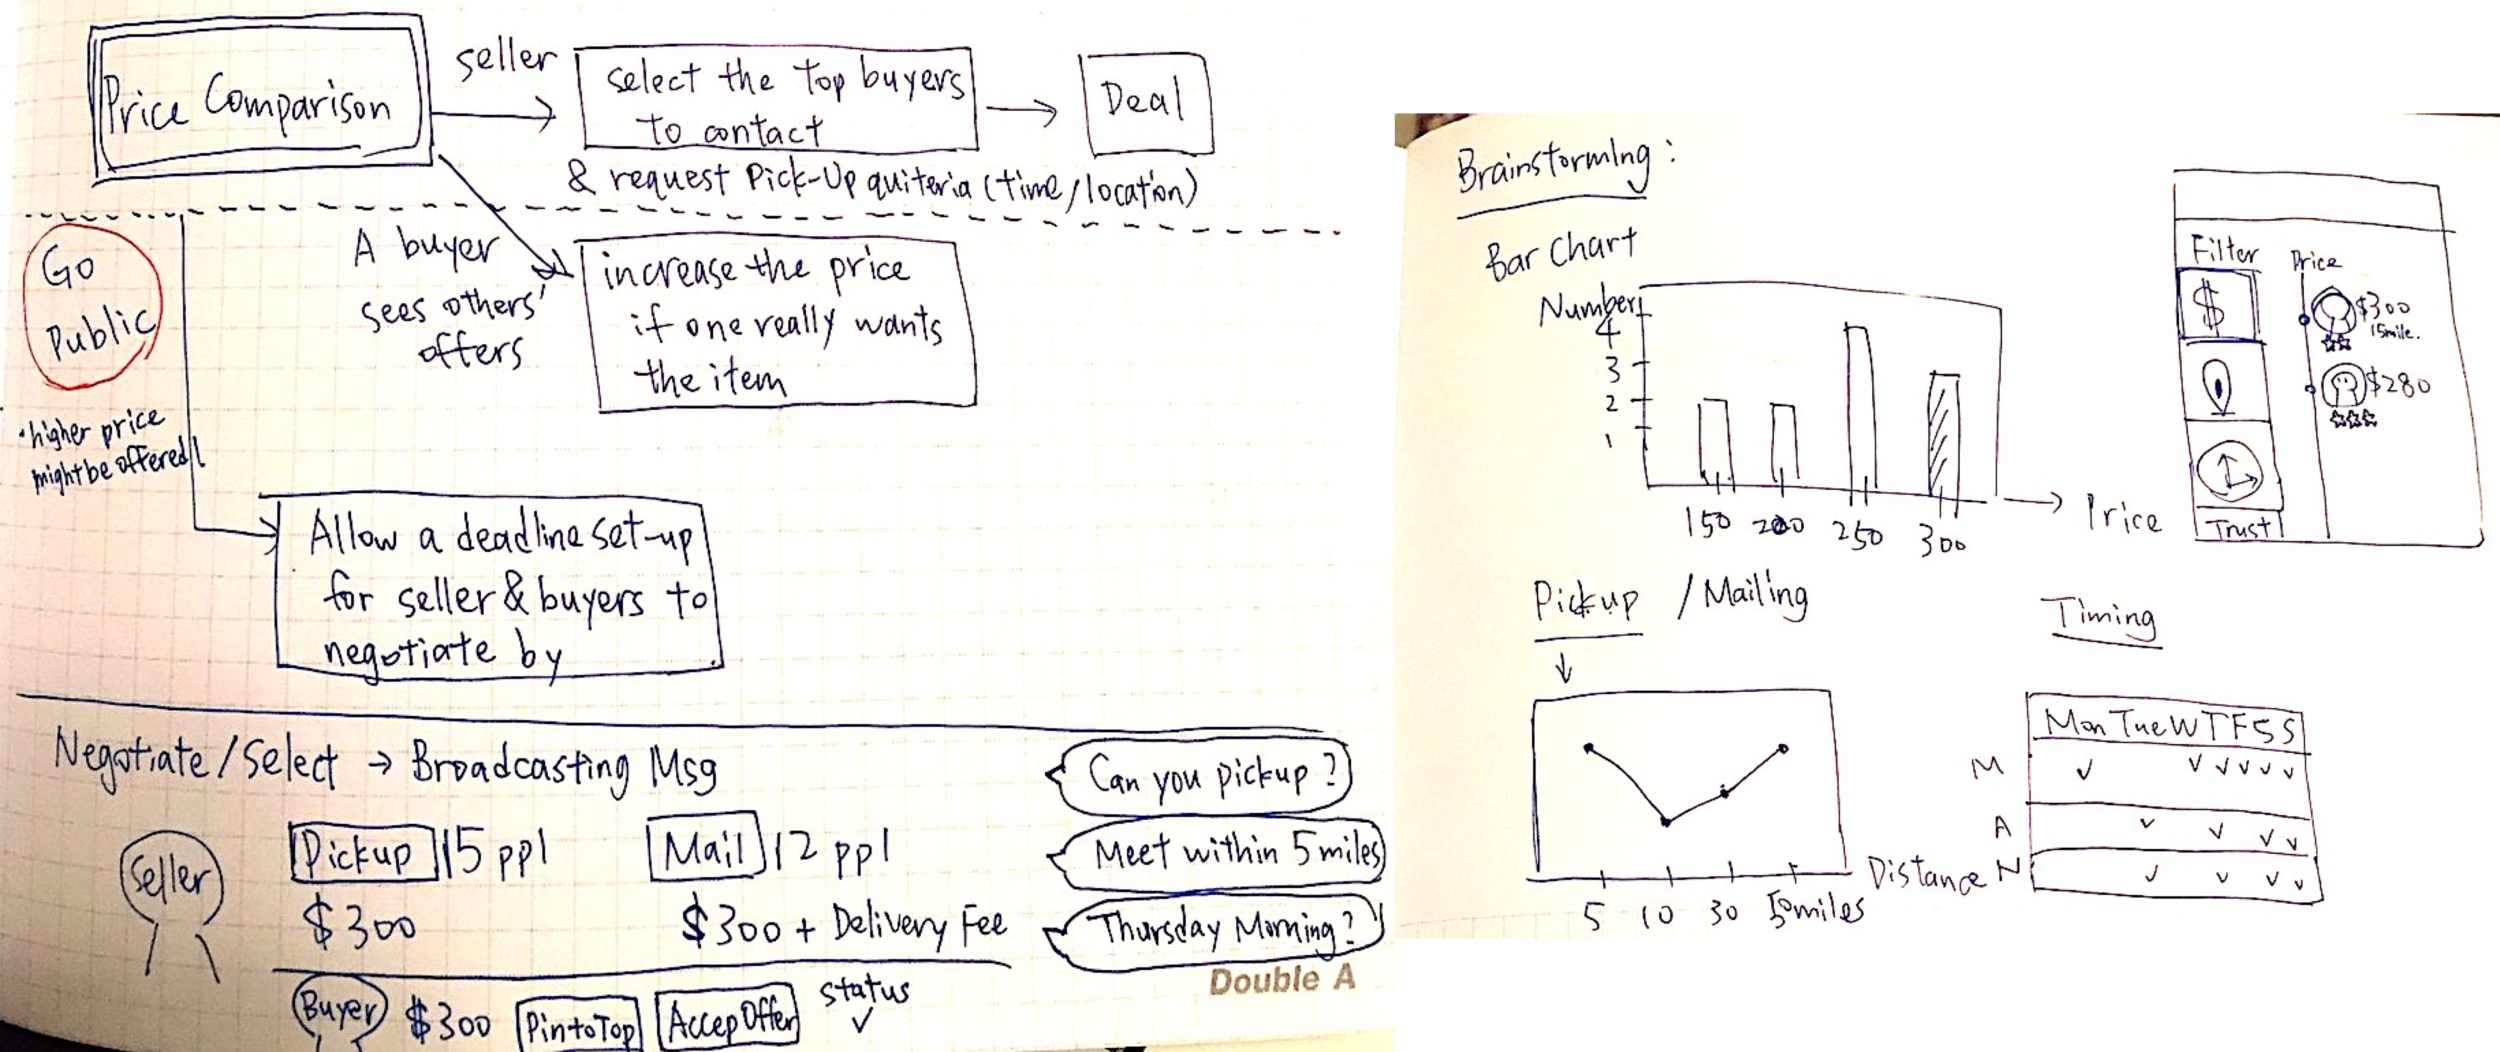 Price Comparison
seller
select the top buyers
to contact
Deal
& request Pick-Up quiteria (time/location)
Go
Public
• higher price
might be offered
A buyer
sees others'
offers
increase the price
if one really wants
the item
Allow a deadline set-up
for seller & buyers to
negotiate by
Negotiate/Select → Broadcasting Msg
Seller
Pickup 15 ppl
$300
Mail 12 ppl
$300 + Delivery Fee
Can you pickup?
Meet within 5 miles
Thursday Morning?
Buyer $300 Pin to Top Accep Offer status
Double A
Brainstorming:
Bar Chart
Number
4
3
2
1
150 200 250 300
Price
Filter
Price
$
$300
15mile.
$280
Trust
Pickup / Mailing
5 10 30 50miles
Distance
Timing
Mon Tue W T F S S
M
A
N